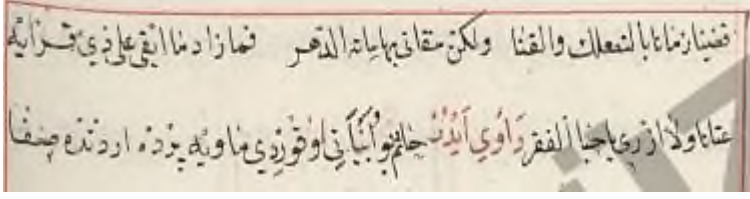 قضينا زمانا بالتصعلك والقنا ولكن سقانى بهاماته الدهر فما زاد ما ابقى على ذي قرابه
عنانا ولا ازرى باحنبا الفقر رَاوِي اَيْدُرْ حاتم بو اَبْيَاتِى اوقوردي ماويه پرده اردنده صفا